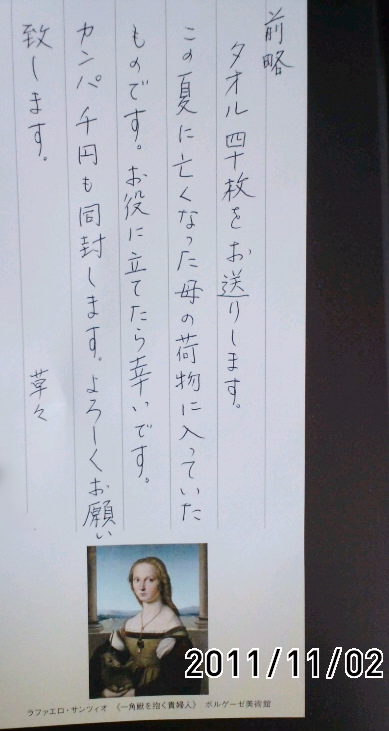 前略
タオル四十枚をお送りします。
この夏に亡くなった母の荷物に入っていた
ものです。お役に立てたら幸いです。
カンパ千円も同封します。よろしくお願い
致します。
草々
ラファエロ・サンツィオ 《一角獣を抱く貴婦人》 ボルゲーゼ美術館
2011/11/02